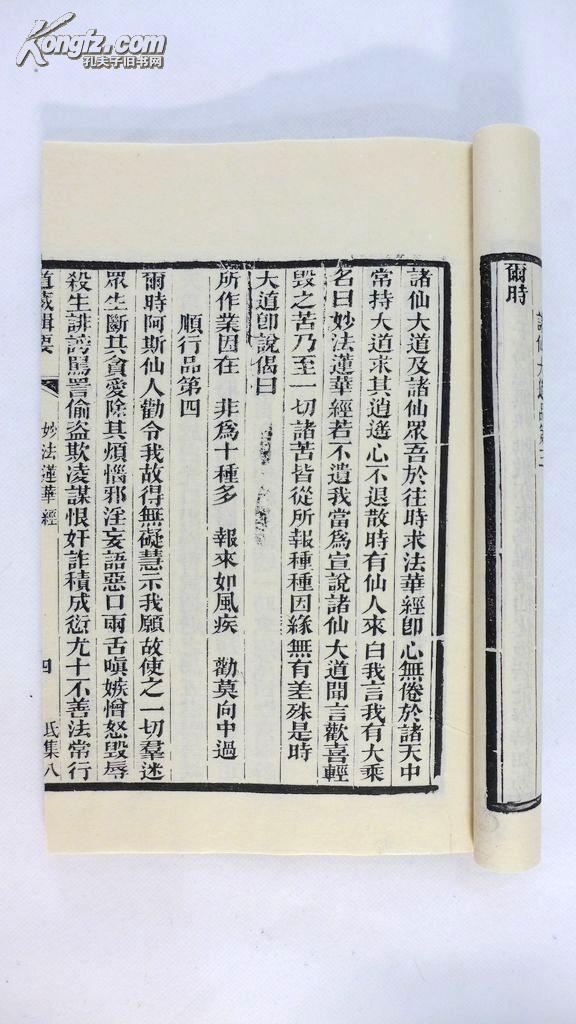 Kongfz.com
孔夫子旧书网
爾時
諸仙大道品第三
諸仙大道及諸仙眾吾於往時求法華經卽心無倦於諸天中
常持大道求其逍遙心不退散時有仙人來白我言我有大乘
名曰妙法蓮華經若不遺我當為宣說諸仙大道聞言歡喜輕
毀之苦乃至一切諸苦皆從所報種種因緣無有差殊是時
大道卽說偈曰
所作業因在　非為十種多　報來如風疾　勸莫向中過
順行品第四
爾時阿斯仙人勸令我故得無礙慧示我願故使之一切羣迷
眾生斷其貪愛除其煩惱邪淫妄語惡口兩舌嗔嫉憎怒毀辱
殺生誹謗罵詈偷盜欺凌謀恨奸詐積成愆尤十不善法常行
道藏輯要　妙法蓮華經　四　氐集八